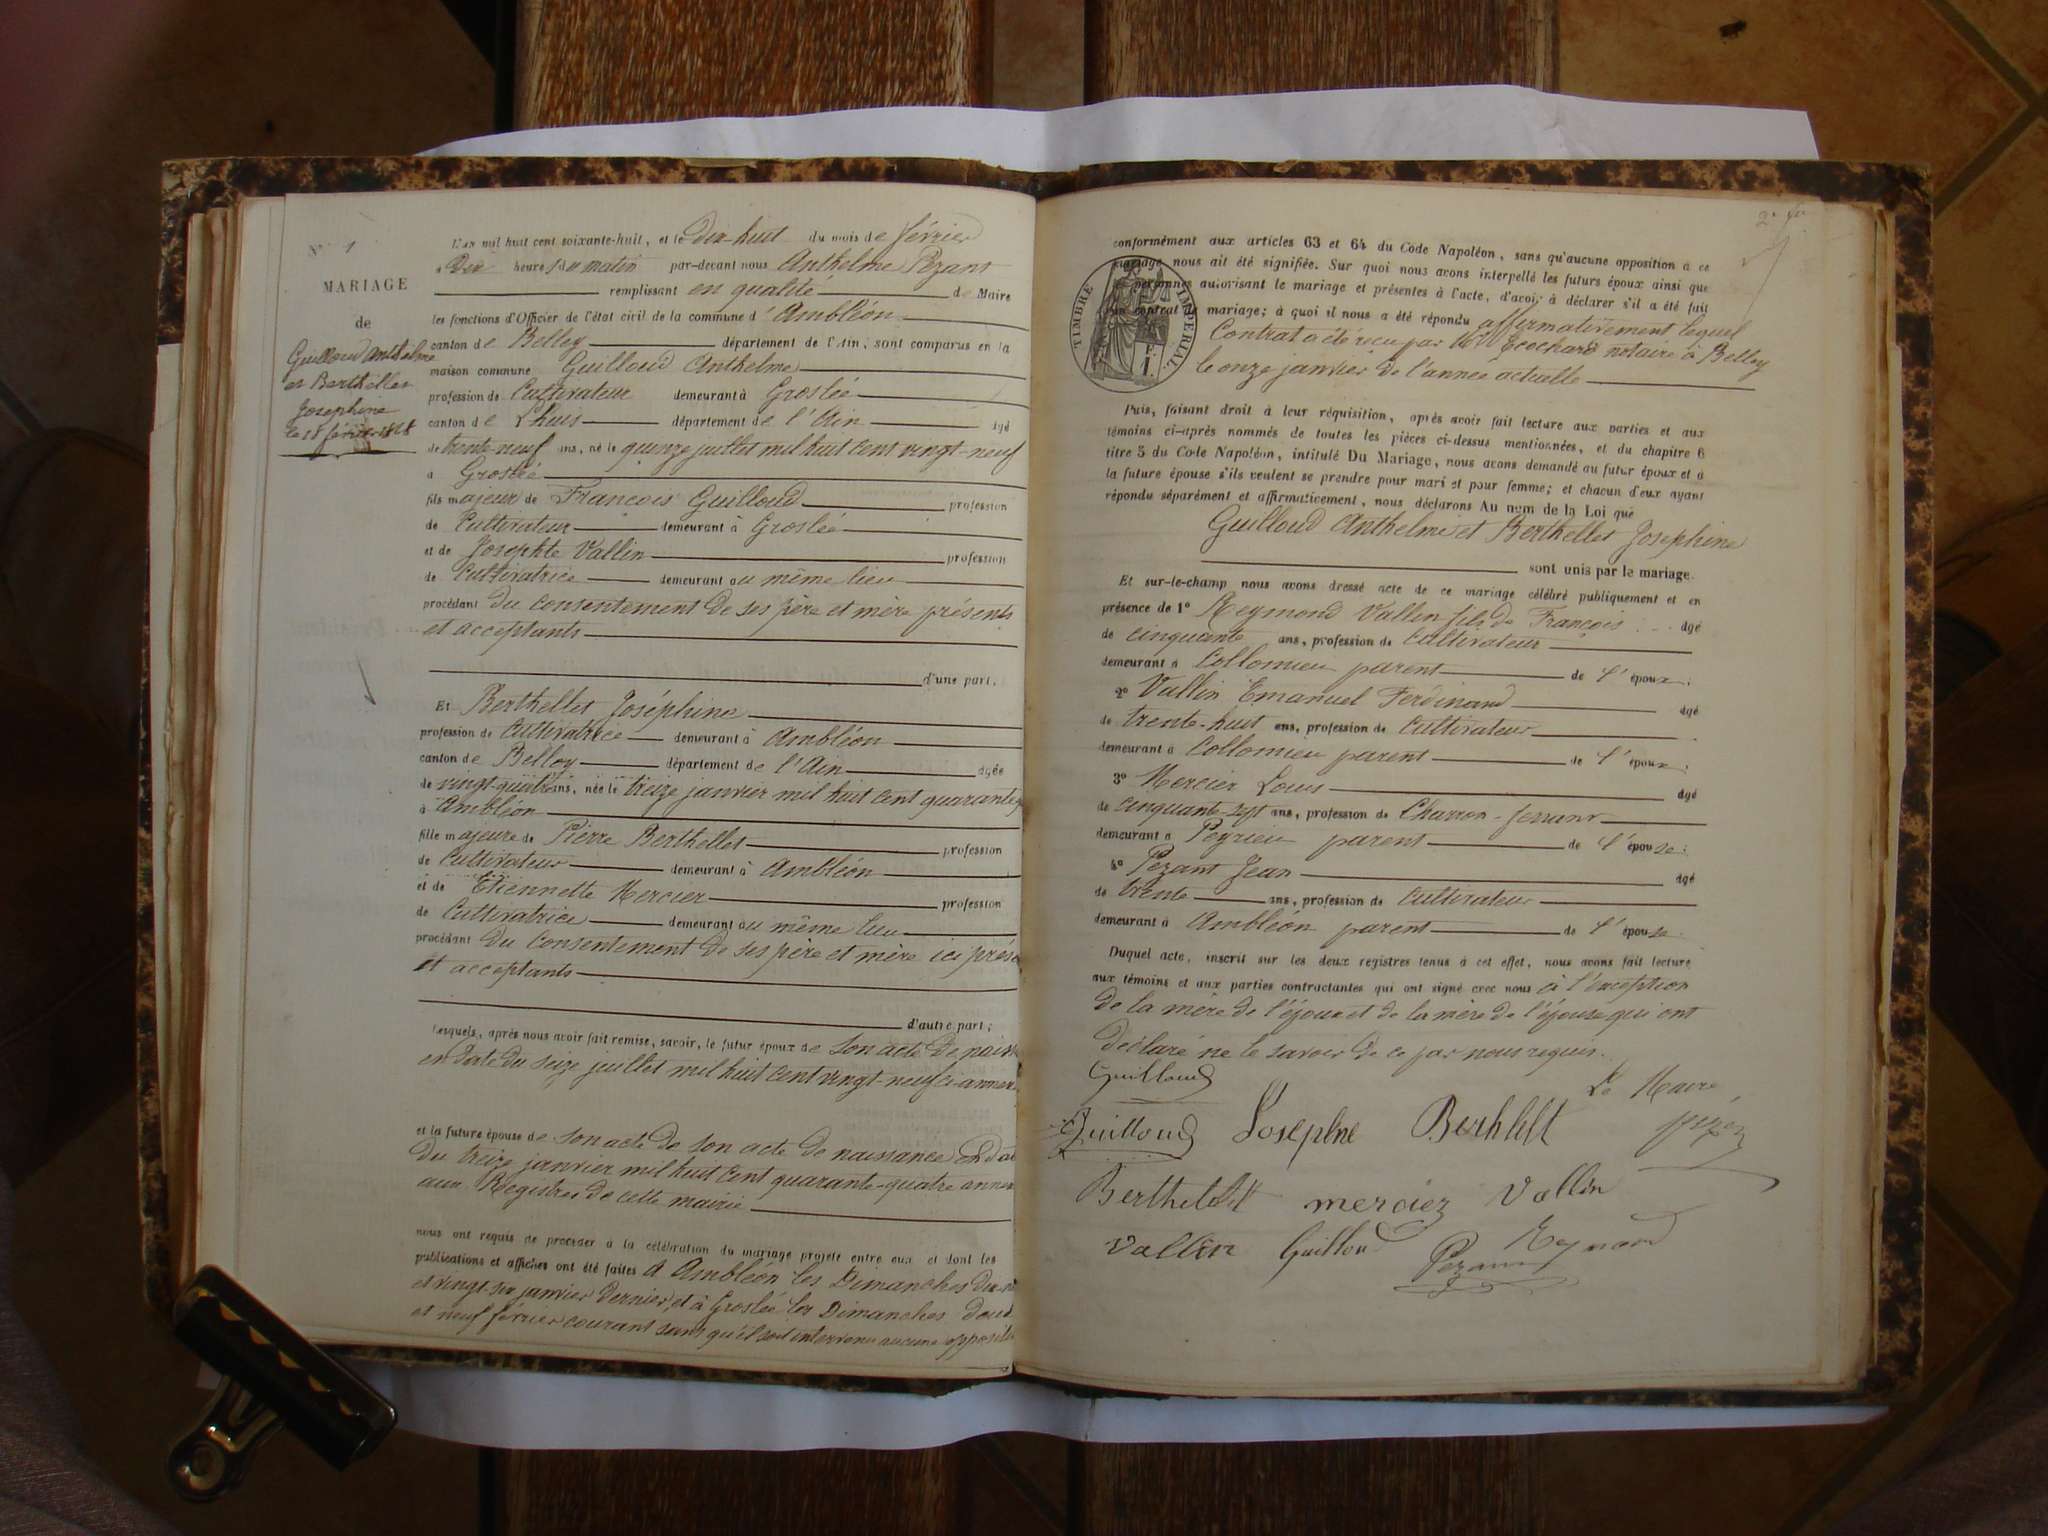 N° 1
MARIAGE
de
Guilloud Anthelme
et Berthellet
Josephine
le 18 février 1868
L'an mil huit cent soixante-huit, et le Dix-huit du mois de février
à Dix heures du matin par-devant nous Anthelme Pezant
remplissant en qualité de Maire
les fonctions d'Officier de l'état civil de la commune d'Ambléon
canton de Belley département de l'Ain, sont comparus en la
maison commune Guilloud Anthelme
profession de Cultivateur demeurant à Groslée
canton de Lhuis département de l'Ain âgé
de trente-neuf ans, né le quinze juillet mil huit cent vingt-neuf
à Groslée
fils majeur de François Guilloud profession
de Cultivateur demeurant à Groslée
et de Josephte Vallin profession
de Cultivatrice demeurant au même lieu
procédant du consentement de ses père et mère présents
et acceptants
d'une part.
Et Berthellet Joséphine
profession de Cultivatrice demeurant à Ambléon
canton de Belley département de l'Ain âgée
de vingt-quatre ans, née le treize janvier mil huit cent quarante
à Ambléon
fille majeure de Pierre Berthellet profession
de Cultivateur demeurant à Ambléon
et de Etiennette Mercier profession
de Cultivatrice demeurant au même lieu
procédant du consentement de ses père et mère ici prése
et acceptants
d'autre part;
Lesquels, après nous avoir fait remise, savoir, le futur époux de son acte de naiss
en date du seize juillet mil huit cent vingt-neuf ci-annex
et la future épouse de son acte de son acte de naissance en dat
du treize janvier mil huit cent quarante-quatre annex
aux Registres de cette mairie
nous ont requis de procéder à la célébration du mariage projeté entre eux et dont les
publications et affiches ont été faites à Ambléon les Dimanches dix-n
et vingt-six janvier dernier, et à Groslée les Dimanches deux
et neuf février courant sans qu'il soit intervenu aucune opposit
2e
conformément aux articles 63 et 64 du Code Napoléon, sans qu'aucune opposition à ce
mariage nous ait été signifiée. Sur quoi nous avons interpellé les futurs époux ainsi que
personnes autorisant le mariage et présentes à l'acte, d'avoir à déclarer s'il a été fait
un contrat de mariage; à quoi il nous a été répondu affirmativement lequel
Contrat a été reçu par Me notaire à Belley
le onze janvier de l'année actuelle
TIMBRE IMPÉRIAL
1 F.
Puis, faisant droit à leur réquisition, après avoir fait lecture aux parties et aux
témoins ci-après nommés de toutes les pièces ci-dessus mentionnées, et du chapitre 6
titre 5 du Code Napoléon, intitulé Du Mariage, nous avons demandé au futur époux et à
la future épouse s'ils veulent se prendre pour mari et pour femme; et chacun d'eux ayant
répondu séparément et affirmativement, nous déclarons Au nom de la Loi que
Guilloud Anthelme et Berthellet Josephine
sont unis par le mariage.
Et sur-le-champ nous avons dressé acte de ce mariage célébré publiquement et en
présence de 1° Reymond Vallin fils de François âgé
de cinquante ans, profession de Cultivateur
demeurant à Collomieu parent de l'époux;
2° Vallin Emanuel Ferdinand âgé
de trente-huit ans, profession de Cultivateur
demeurant à Collomieu parent de l'époux;
3° Mercier Louis âgé
de cinquante-sept ans, profession de Charron-ferrant
demeurant à Peyrieu parent de l'épouse;
4° Pezant Jean âgé
de trente ans, profession de Cultivateur
demeurant à Ambléon parent de l'épouse.
Duquel acte, inscrit sur les deux registres tenus à cet effet, nous avons fait lecture
aux témoins et aux parties contractantes qui ont signé avec nous à l'exception
de la mère de l'époux et de la mère de l'épouse qui ont
déclaré ne le savoir de ce par nous requis.
Guilloud Le Maire
Guilloud Josephne Berthlelt Pezan
Berthelelt mercier Vallin
Vallin Guilloud Pezant Reymond